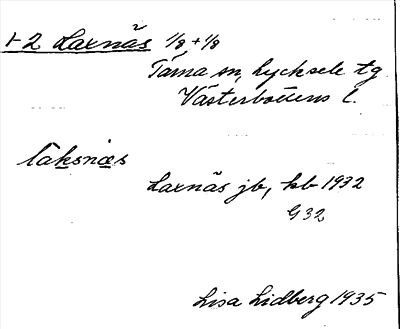 1-2 Laxnäs 1/8 + 1/8
Tärna sn, Lycksele tg
Västerbottens l.
laksnæs
Laxnäs jb, kb 1932
G 32
Lisa Lidberg 1935